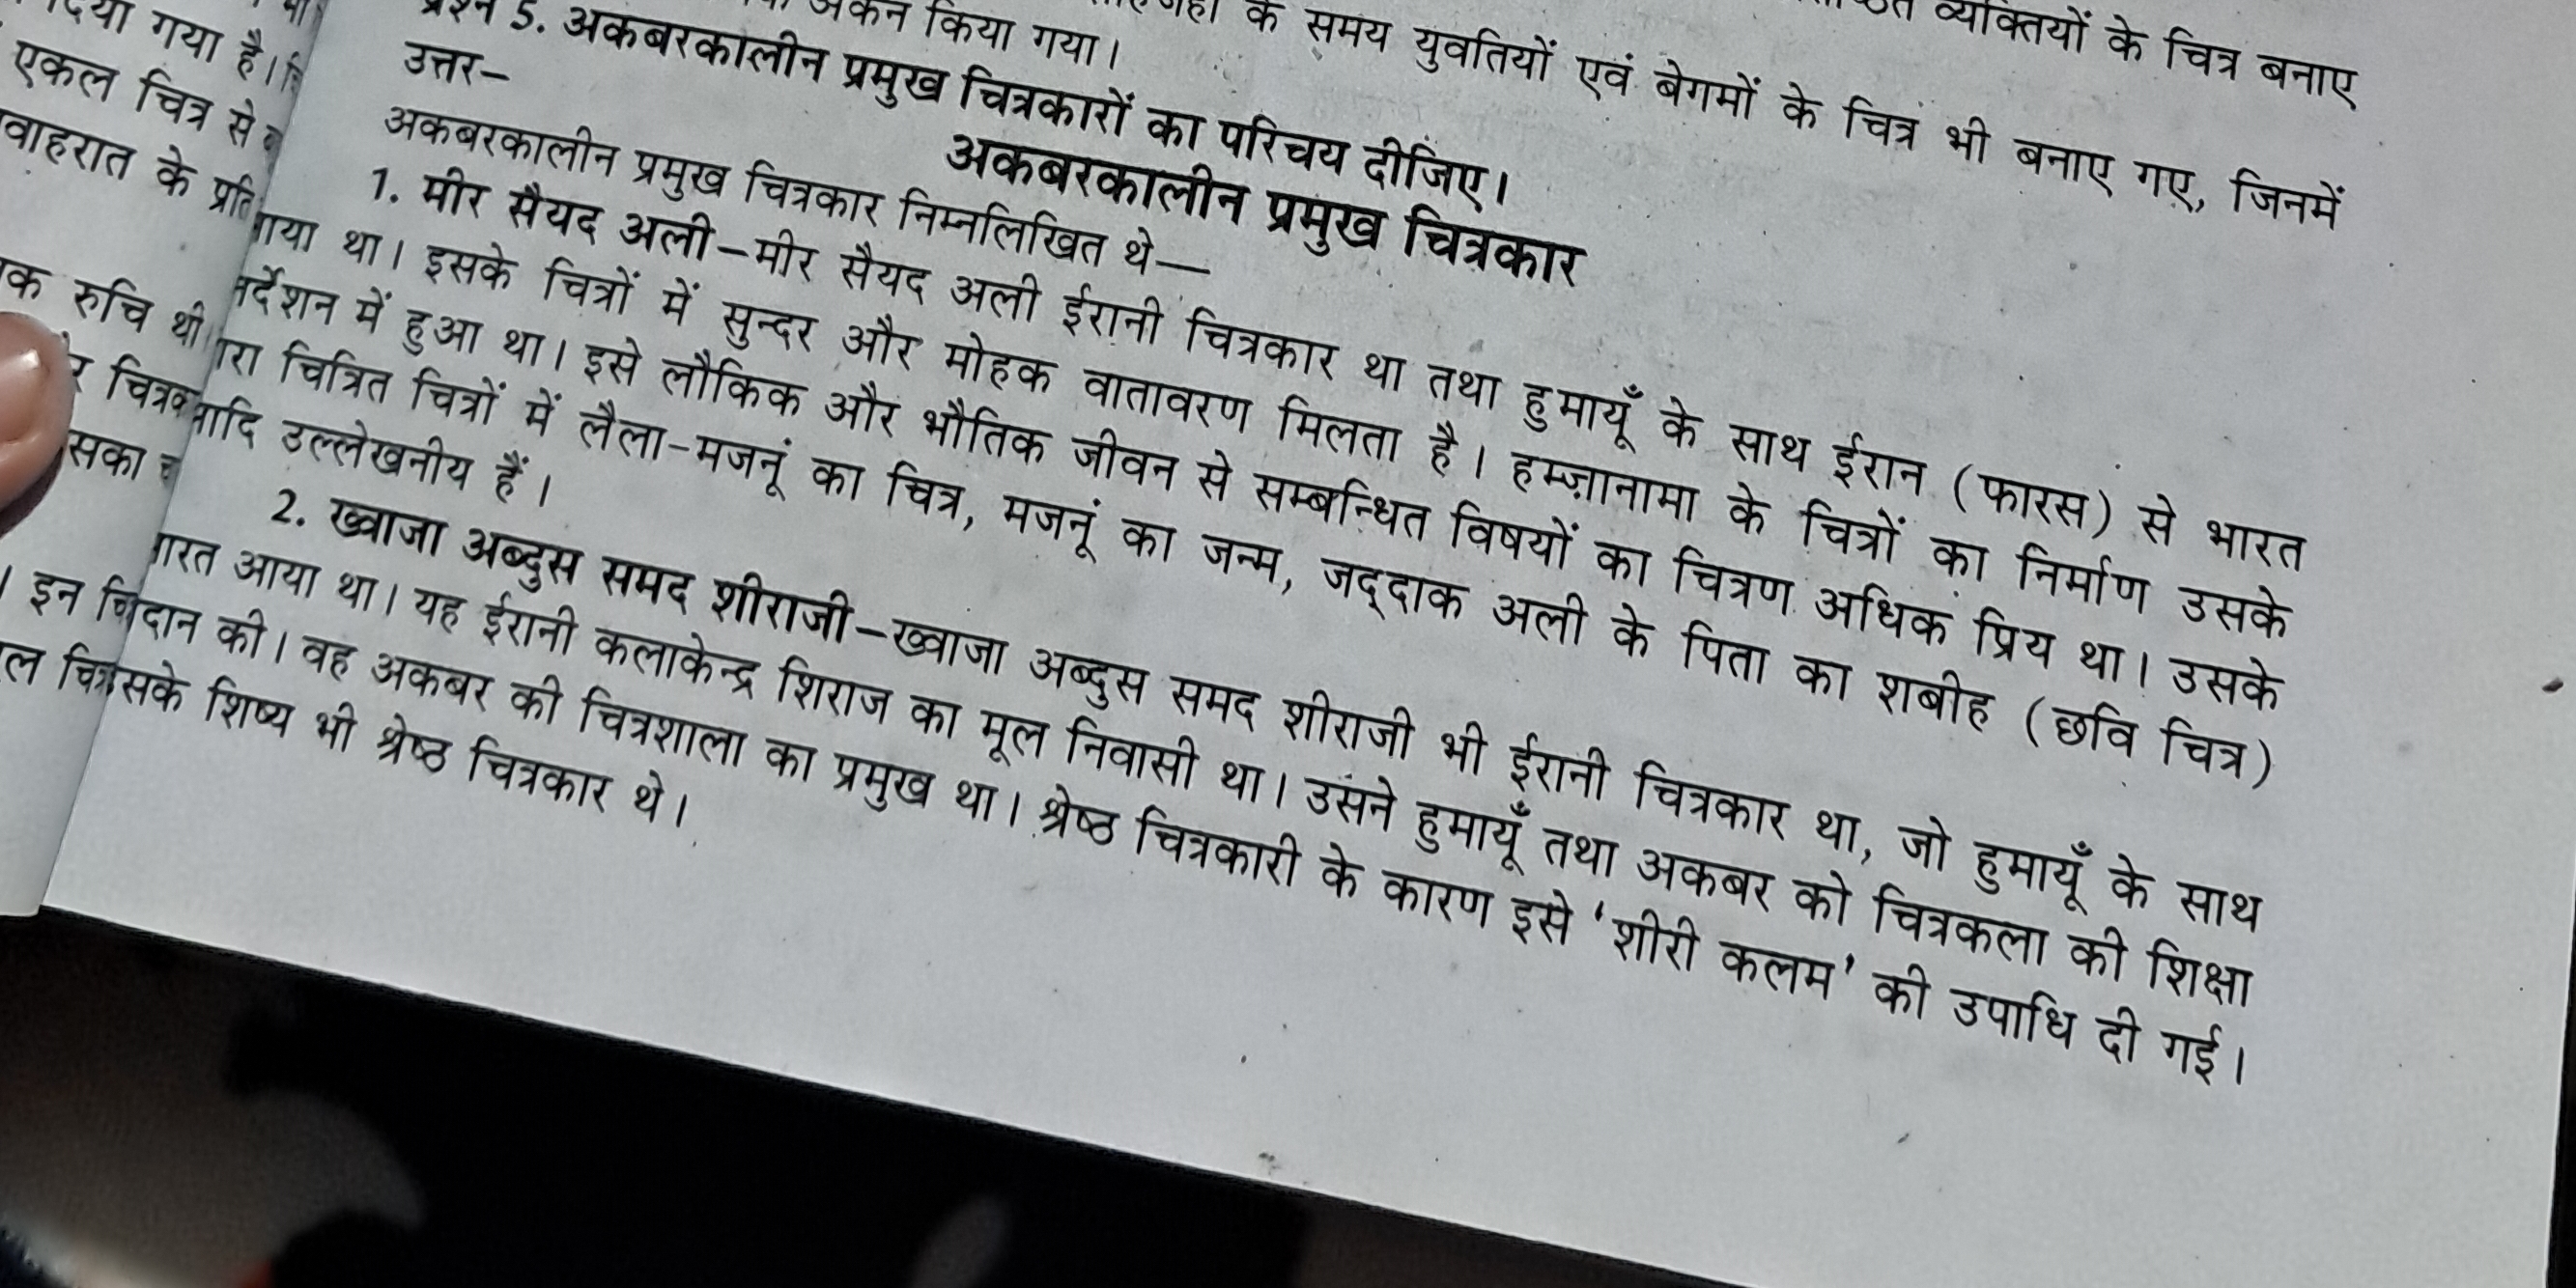 व्यक्तियों के चित्र बनाए
के समय युवतियों एवं बेगमों के चित्र भी बनाए गए, जिनमें
अंकन किया गया।
प्रश्न 5. अकबरकालीन प्रमुख चित्रकारों का परिचय दीजिए।
उत्तर–
अकबरकालीन प्रमुख चित्रकार
अकबरकालीन प्रमुख चित्रकार निम्नलिखित थे—
1. मीर सैयद अली–मीर सैयद अली ईरानी चित्रकार था तथा हुमायूँ के साथ ईरान (फारस) से भारत
था। इसके चित्रों में सुन्दर और मोहक वातावरण मिलता है। हम्ज़ानामा के चित्रों का निर्माण उसके
में हुआ था। इसे लौकिक और भौतिक जीवन से सम्बन्धित विषयों का चित्रण अधिक प्रिय था। उसके
चित्रित चित्रों में लैला-मजनूं का चित्र, मजनूं का जन्म, जद्दाक अली के पिता का शबीह (छवि चित्र)
उल्लेखनीय हैं।
2. ख्वाजा अब्दुस समद शीराजी–ख्वाजा अब्दुस समद शीराजी भी ईरानी चित्रकार था, जो हुमायूँ के साथ
आया था। यह ईरानी कलाकेन्द्र शिराज का मूल निवासी था। उसने हुमायूँ तथा अकबर को चित्रकला की शिक्षा
की। वह अकबर की चित्रशाला का प्रमुख था। श्रेष्ठ चित्रकारी के कारण इसे ‘शीरी कलम’ की उपाधि दी गई।
शिष्य भी श्रेष्ठ चित्रकार थे।
गया है।
एकल चित्र से
के
रुचि थी
इन